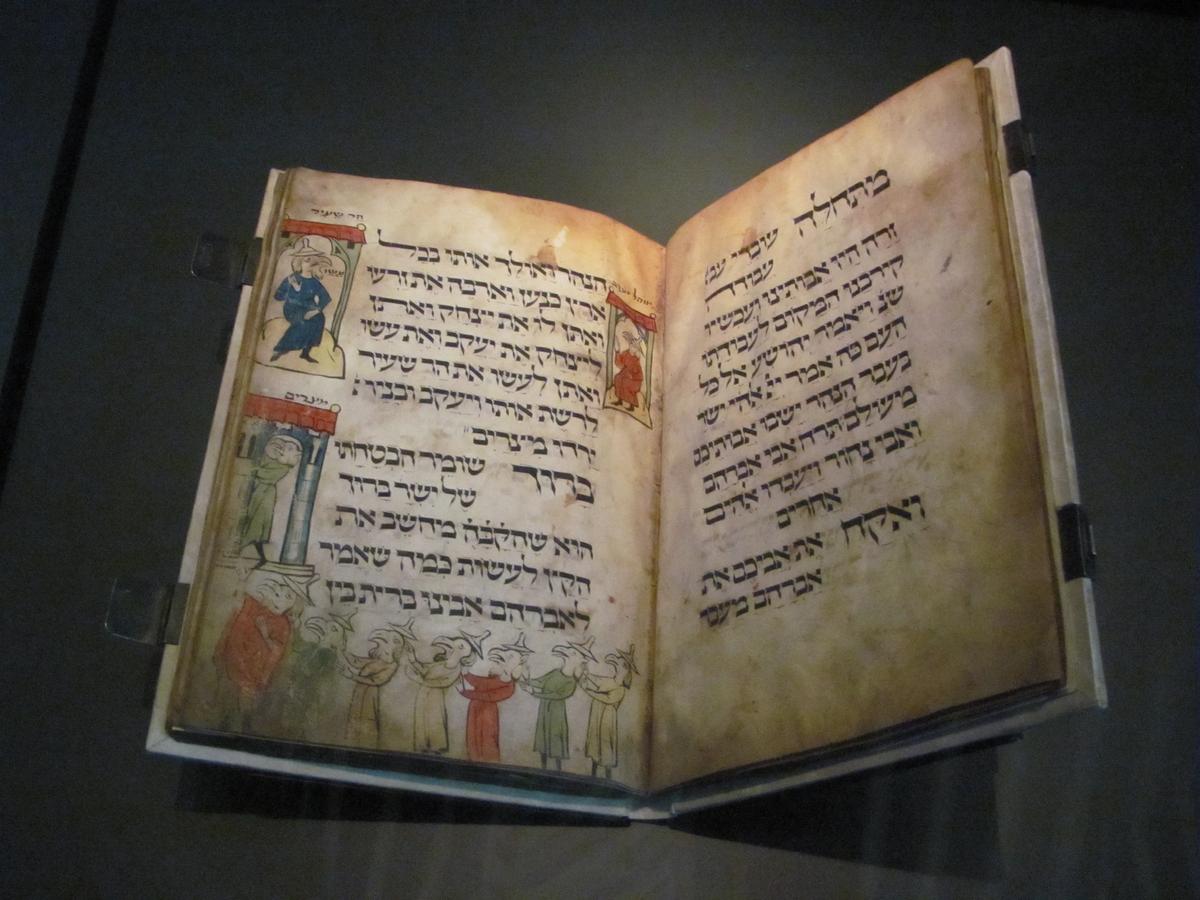 מתחלה עובדי עבו
עבודה
זרה היו אבותינו ועכשיו
קירבנו המקום לעבודתו
שנ ויאמר יהושע אל כל
העם כה אמר יי אהי ישר
בעבר הנהר ישבו אבותיכם
מיעולם תרח אבי אברהם
ואבי נחור ויעבדו אהים
אחרים
ואקח את אביכם את
אברהם מעבר
הר שעיר
הנהר ואולך אותו בכל
ארץ כנען וארבה את זרעו
ואתן לו את יצחק ואתן
ליצחק את יעקב ואת עשו
ואתן לעשו את הר שעיר
לרשת אותו ויעקב ובניו
ירדו מצרים
מצרים
ברוך שומר הבטחתו
של ישר ברוך
הוא שהקבה מחשב את
הקץ לעשות כמה שאמר
לאברהם אבינו ברית בין